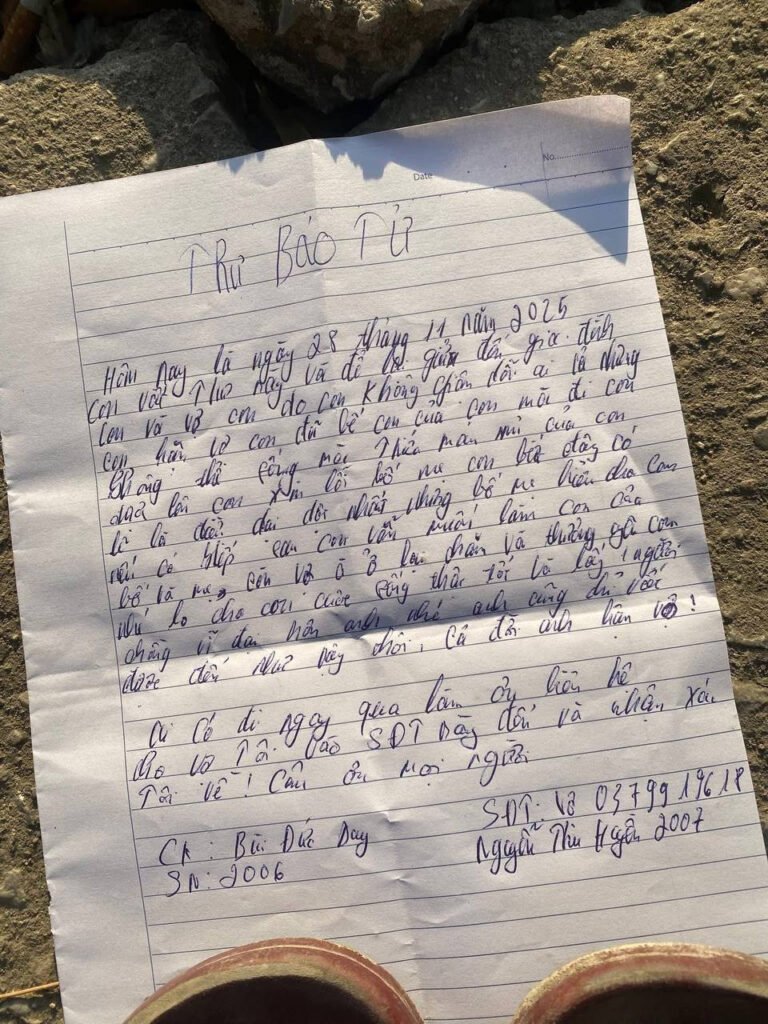 No.
Date
THƯ BÁO TỬ
Hôm nay là ngày 28 tháng 11 năm 2025
con viết thư này và để lại gửi đến gia đình
con và vợ con do con không giận dỗi ai cả nhưng
con hận vợ con đã bế con của con mãi đi con
không thể sống mãi
dựa lên con xin lỗi bố mẹ con biết đây có
lẽ là điều dại dột nhất nhưng bố mẹ hiểu cho con
nếu có kiếp sau con vẫn muốn làm con của
bố và mẹ, còn vợ ở lại chăm và thương yêu con
nhé lo cho con cuộc sống thật tốt và lấy 1 người
chồng vĩ đại hơn anh nhé anh cũng chỉ viết
được đến như này thôi, cả đời anh hận vợ!
Ai có đi ngay qua làm ơn liên hệ
cho vợ tôi vào SĐT này đến và nhận xác
tôi về! Cảm ơn mọi người
SĐT: Vợ 0379919618
CK: Bùi Đức Day
Nguyễn Thu Huyền 2007
SN: 2006